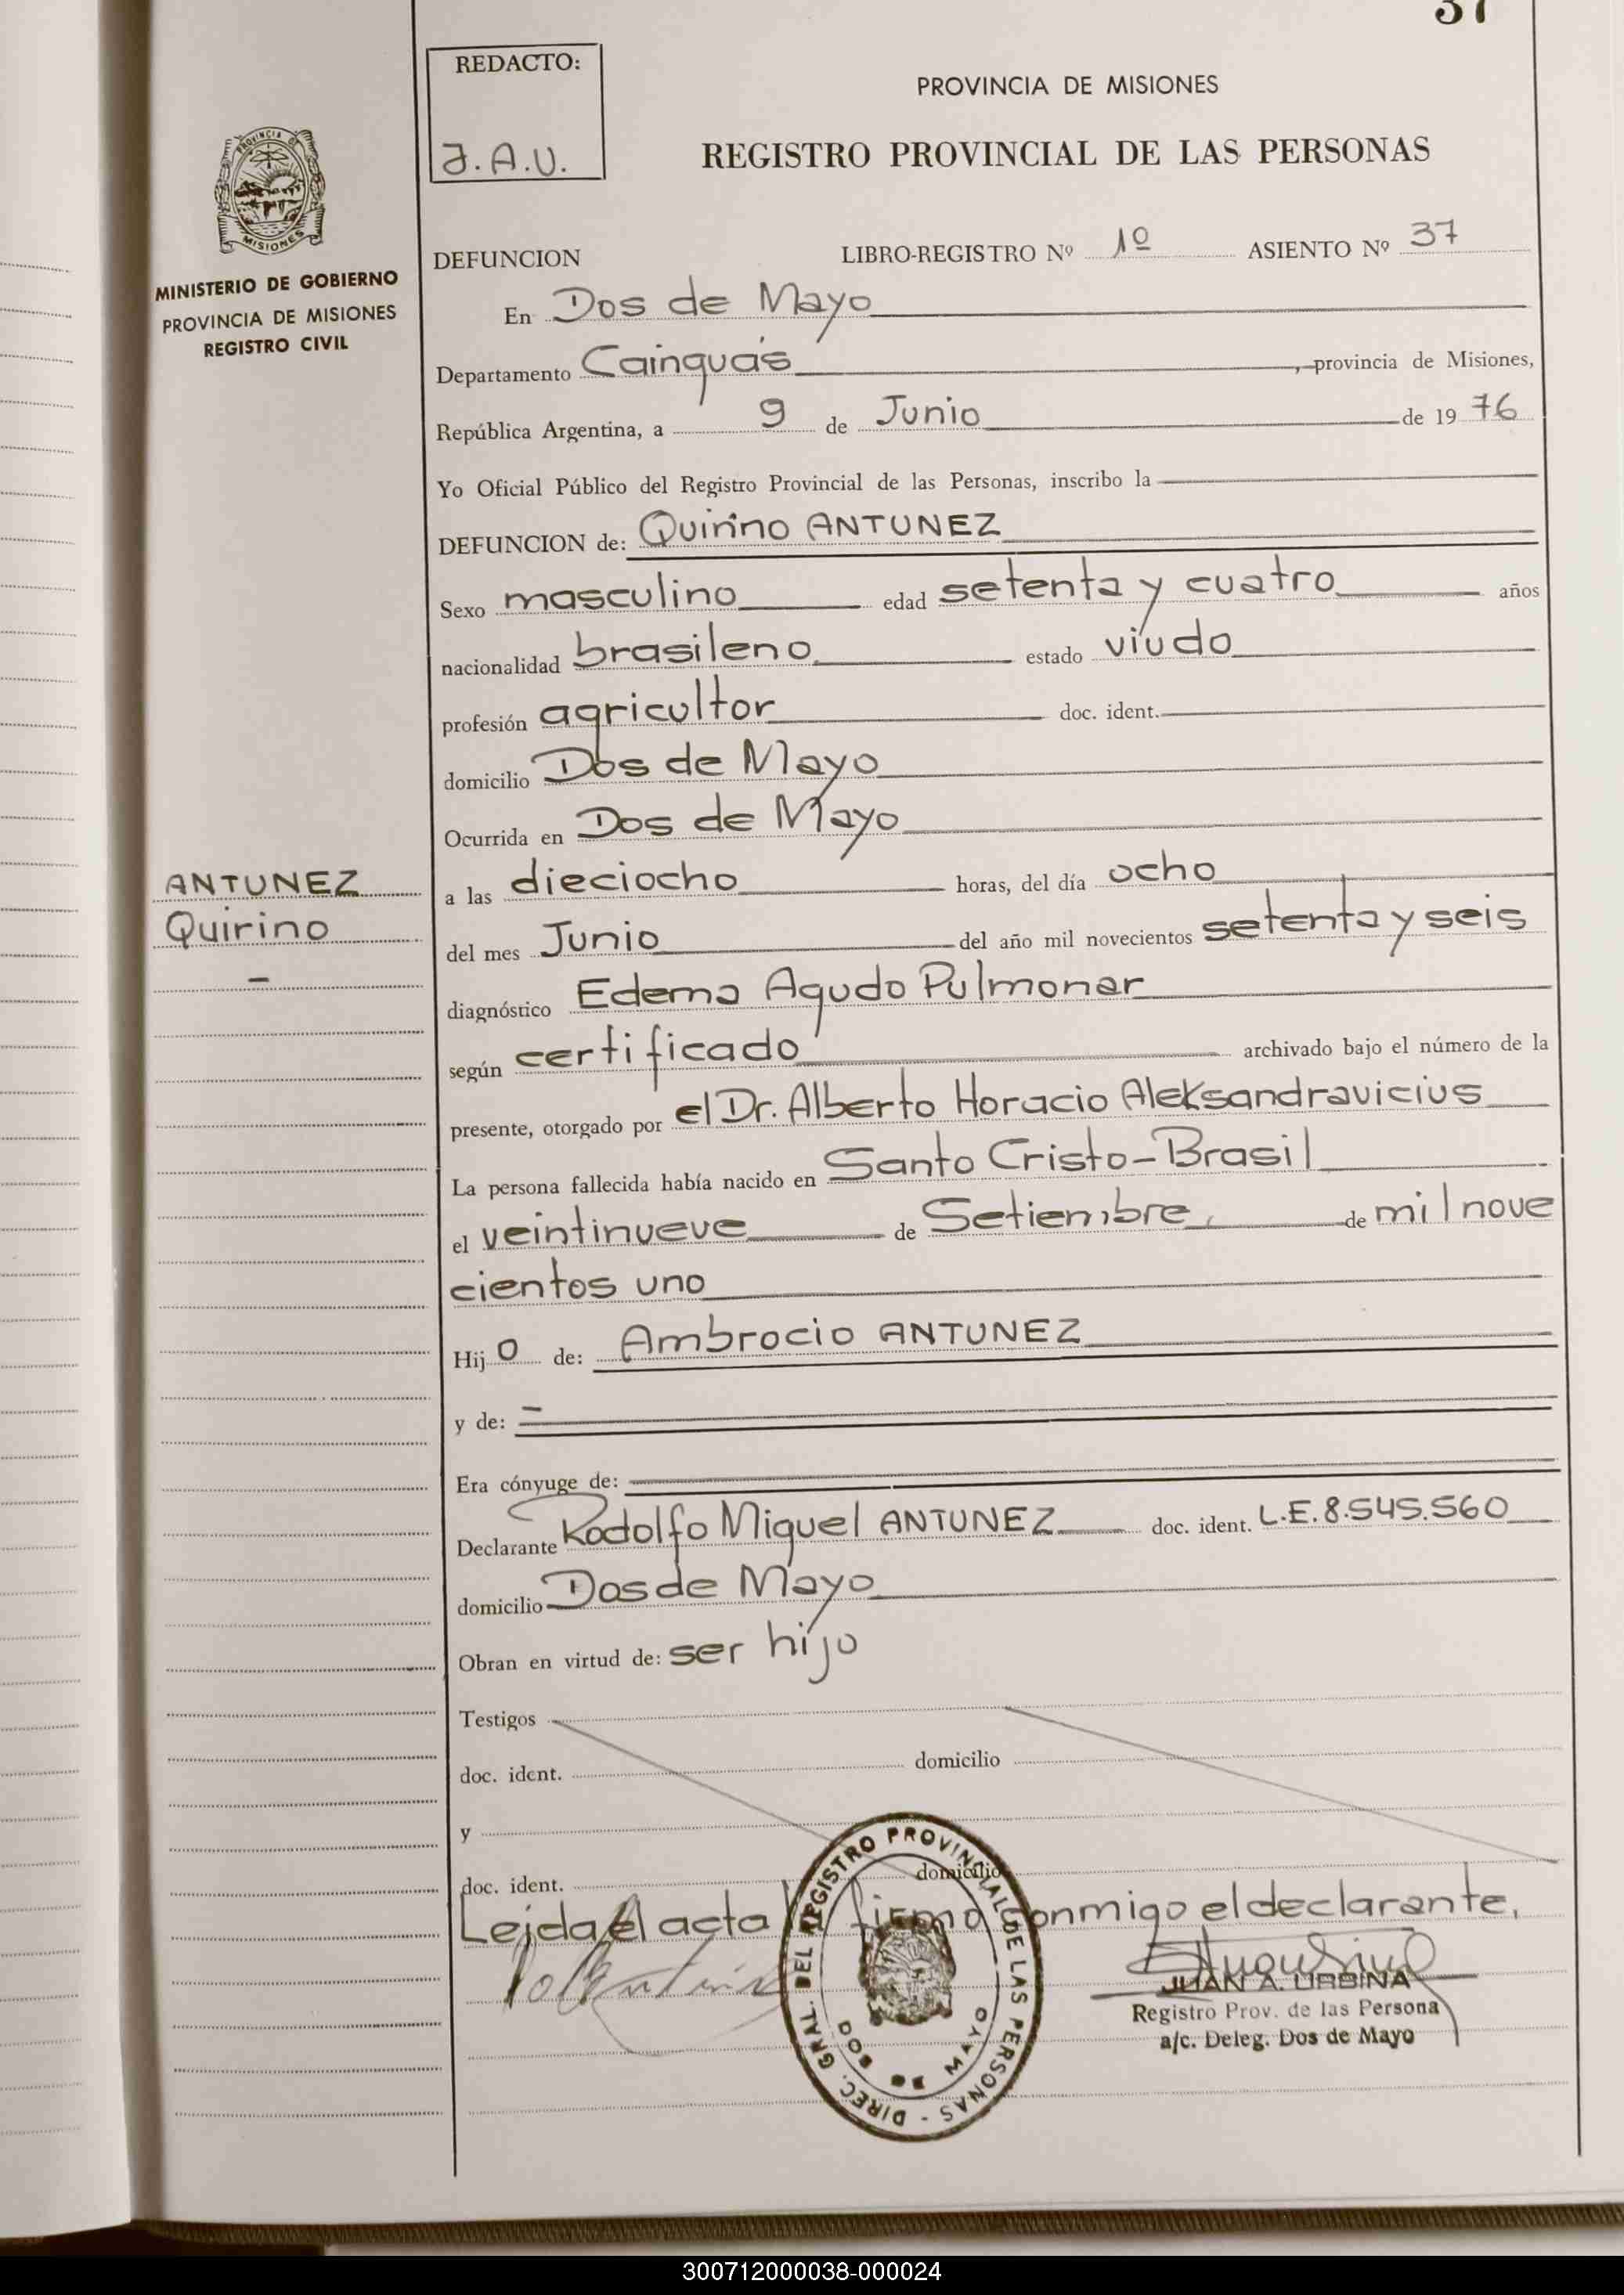 37
REDACTO:
J.A.U.
PROVINCIA DE MISIONES
REGISTRO PROVINCIAL DE LAS PERSONAS
PROVINCIA DE
MISIONES
MINISTERIO DE GOBIERNO
PROVINCIA DE MISIONES
REGISTRO CIVIL
DEFUNCION LIBRO-REGISTRO Nº 1º ASIENTO Nº 37
En Dos de Mayo
Departamento Cainguás, provincia de Misiones,
República Argentina, a 9 de Junio de 1976
Yo Oficial Público del Registro Provincial de las Personas, inscribo la
DEFUNCION de: Quirino ANTUNEZ
Sexo masculino edad setenta y cuatro años
nacionalidad brasileno estado viudo
profesión agricultor doc. ident.
domicilio Dos de Mayo
Ocurrida en Dos de Mayo
ANTUNEZ
Quirino
-
a las dieciocho horas, del día ocho
del mes Junio del año mil novecientos setenta y seis
diagnóstico Edema Agudo Pulmonar
según certificado archivado bajo el número de la
presente, otorgado por el Dr. Alberto Horacio Aleksandravicius
La persona fallecida había nacido en Santo Cristo-Brasil
el veintinueve de Setiembre, de mil nove
cientos uno
Hijo de: Ambrocio ANTUNEZ
y de: -
Era cónyuge de:
Declarante Rodolfo Miguel ANTUNEZ doc. ident. L.E. 8.545.560
domicilio Dos de Mayo
Obran en virtud de: ser hijo
Testigos
doc. ident. domicilio
y
doc. ident. domicilio
Leida el acta la firma conmigo el declarante.
DIREC. GRAL. DEL REGISTRO PROVINCIAL DE LAS PERSONAS -
DOS DE MAYO
JUAN A. URBINA
Registro Prov. de las Persona
a/c. Deleg. Dos de Mayo
300712000038-000024